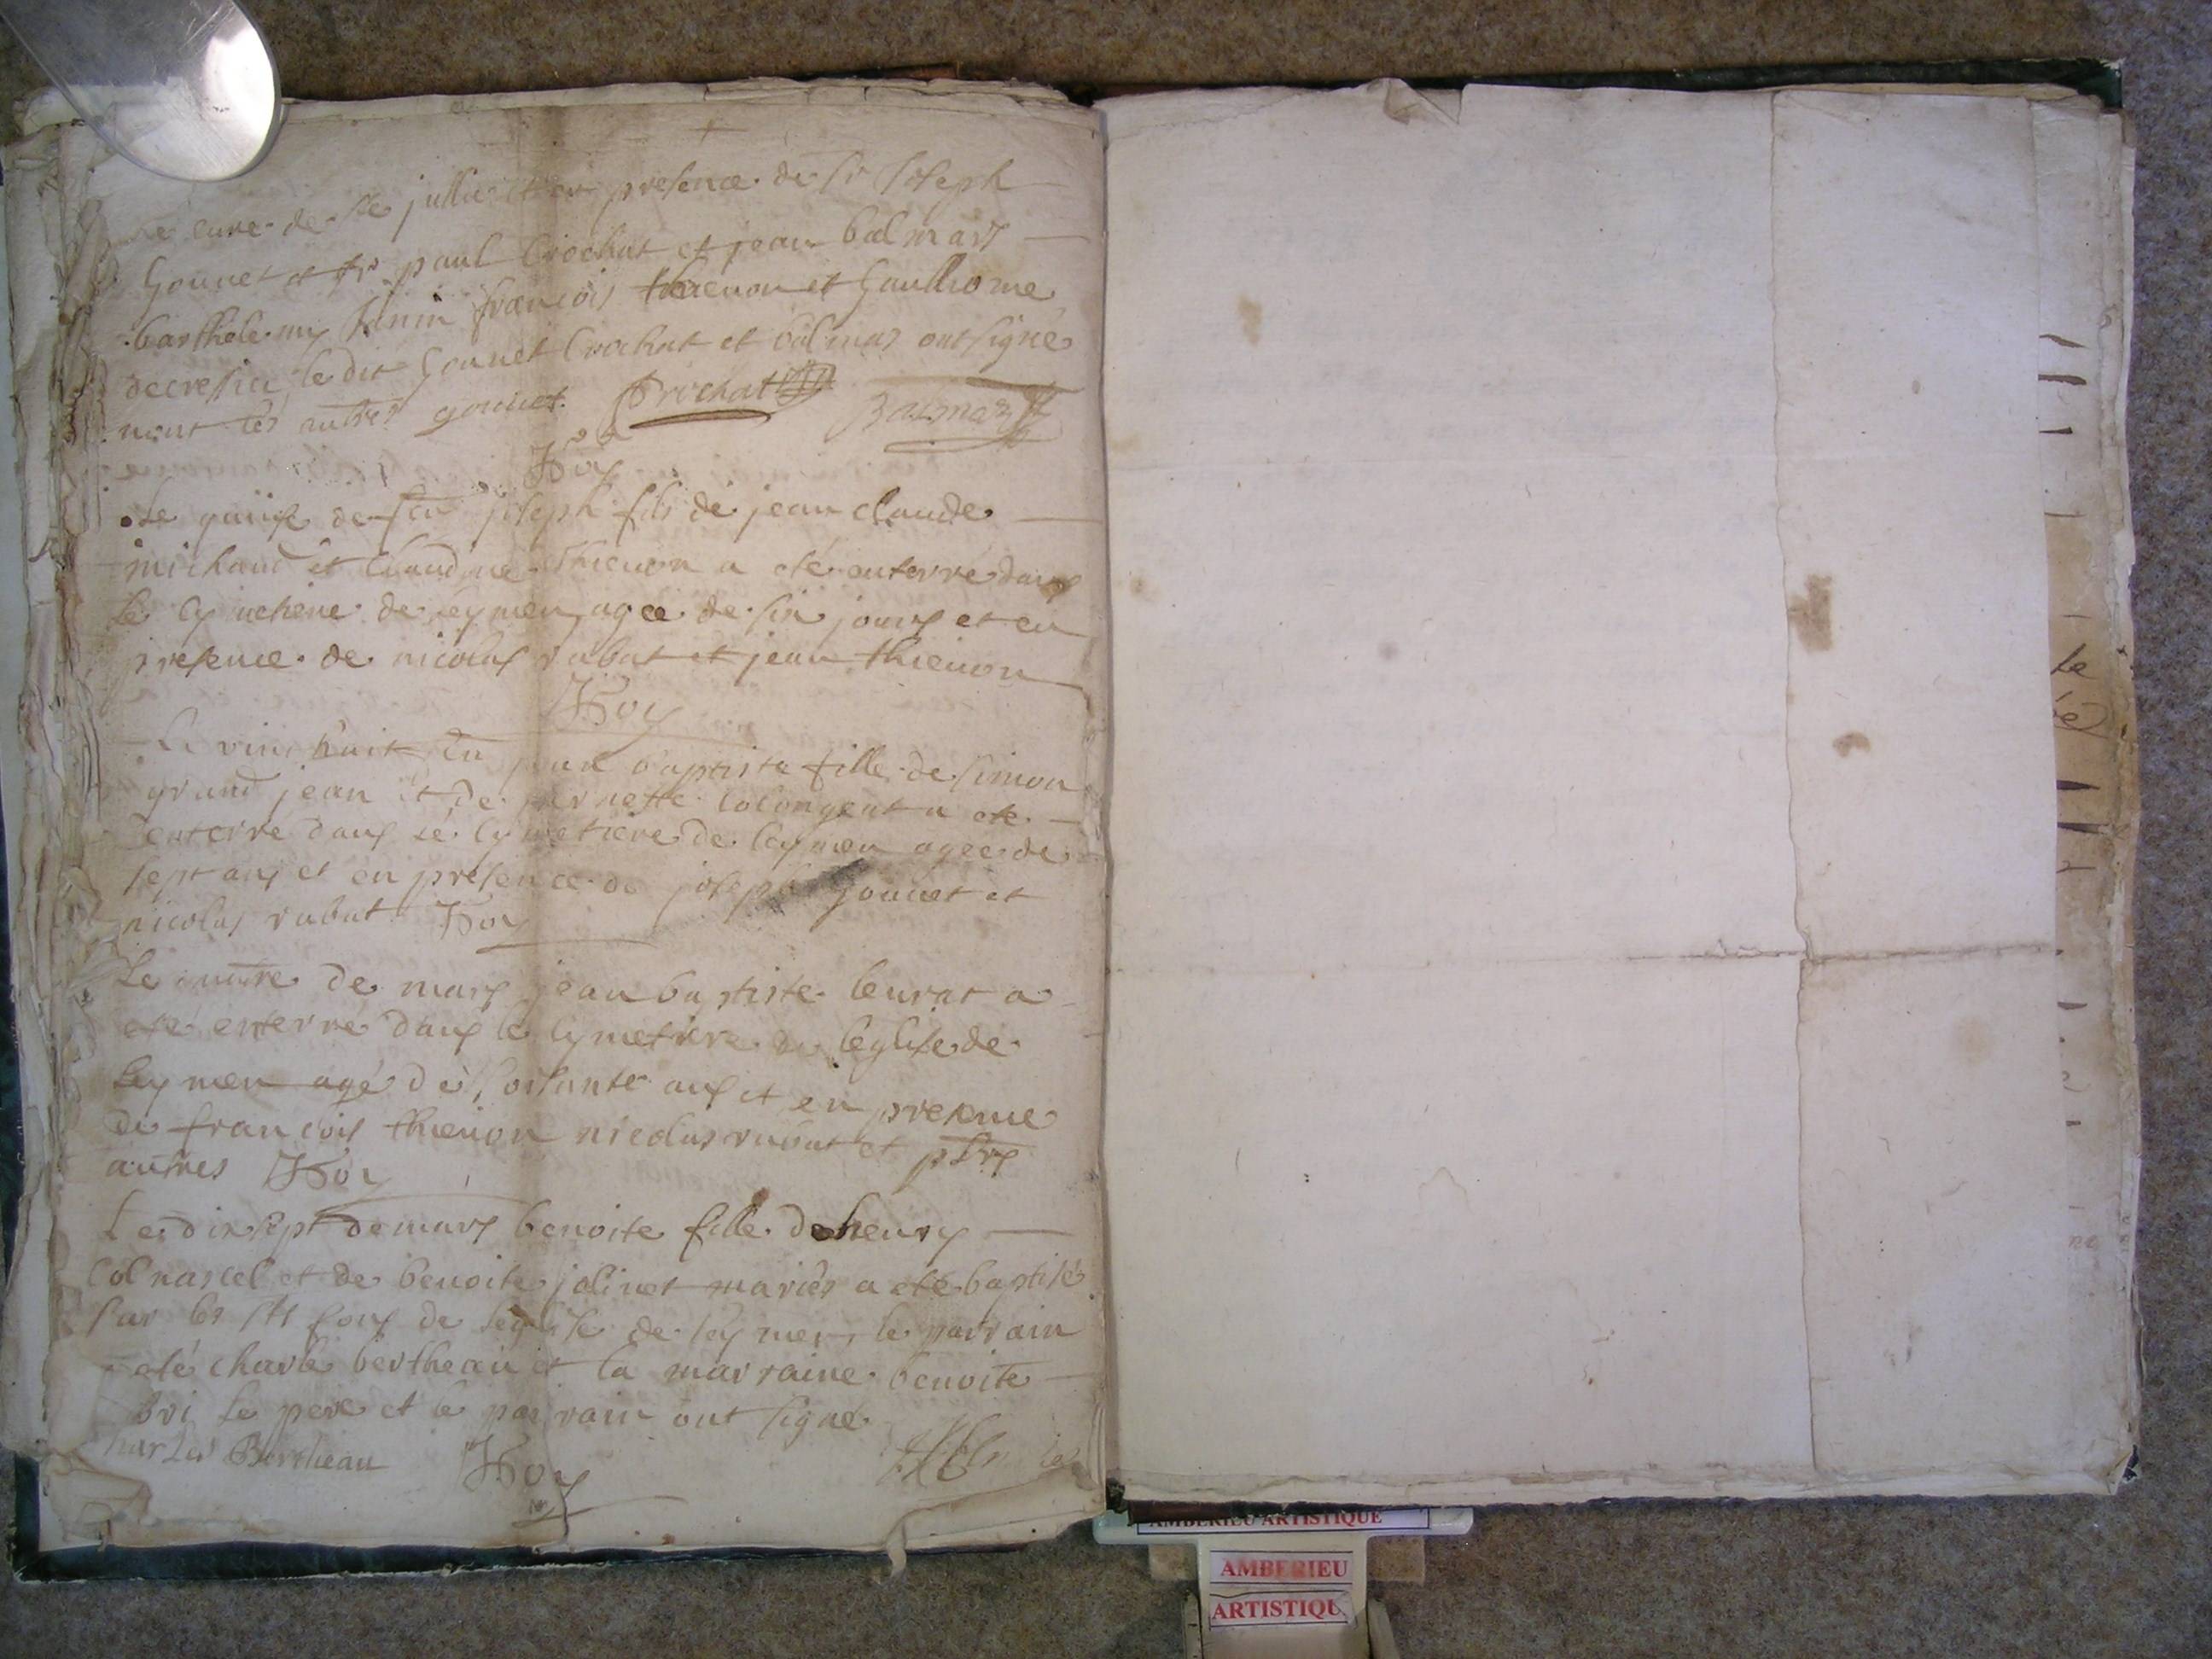 cure de Ste jullie et en presence de Sr Joseph
Gounet et Sr paul Crochat et jean balmas
barthelemy francois thienon et
le dit Gounet Crochat et balmas ont signé
non les autres gounet Crochat Balmas
Roy
Le quinze de joseph fils de jean claude
michaud et Claudine thienon a eté enterré dans
Le cymetiere de leymen agee de six jours et en
presence de nicolas rubat et jean thienon
Roy
Le vint huit jean baptiste fille de simon
grand jean et de pernette Colongeat a eté
enterré dans le cymetiere de leymen agee de
sept ans et en presence de joseph gounet et
nicolas rubat Roy
Le quatre de mars jean baptiste leurat a
eté enterré dans le cymetiere de leglise de
Leymen agé de soisante ans et en presence
de francois thienon nicolas rubat et plrs
autres Roy
Le dix sept de mars benoite fille de henry
et de benoite jolinet mariés a eté baptisé
sur les sts fons de leglise de leymen, le parrain
a eté charle bertheau et la marraine benoite
bri le pere et le parrain ont signé
Charles Bertheau Roy
AMBERIEU ARTISTIQUE
AMBERIEU
ARTISTIQU